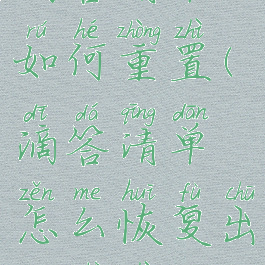 rú hé zhòng zhì
如何重置(
dī dá qīng dān
滴答清单
zěn me huī fù chū
怎么恢复出